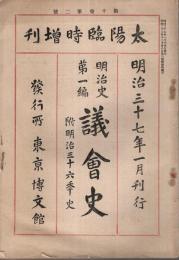 第十卷第二號
太陽臨時增刊
明治三十七年一月刊行
明治史第一編
議會史
附明治三十六年史
發行所 東京博文館